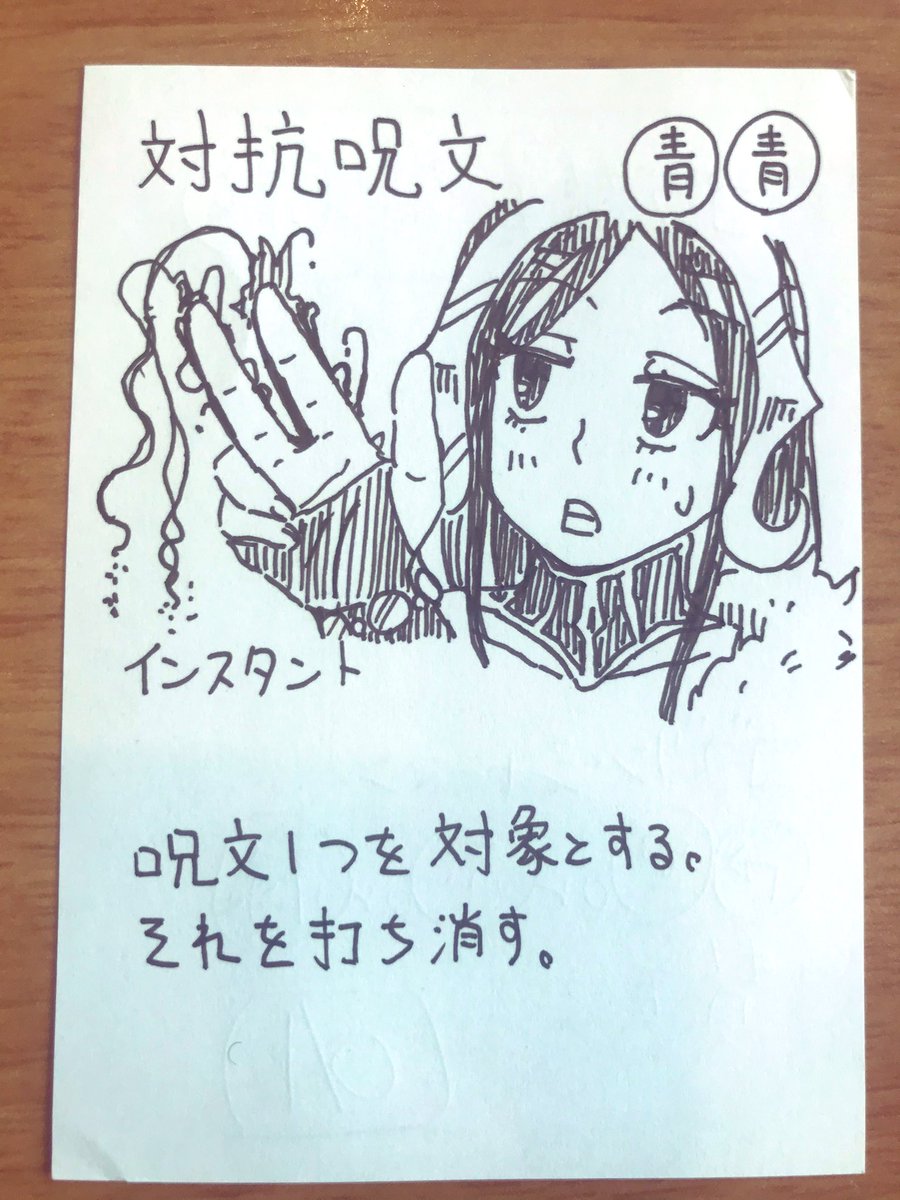 対抗呪文 青 青
インスタント
呪文1つを対象とする。
それを打ち消す。